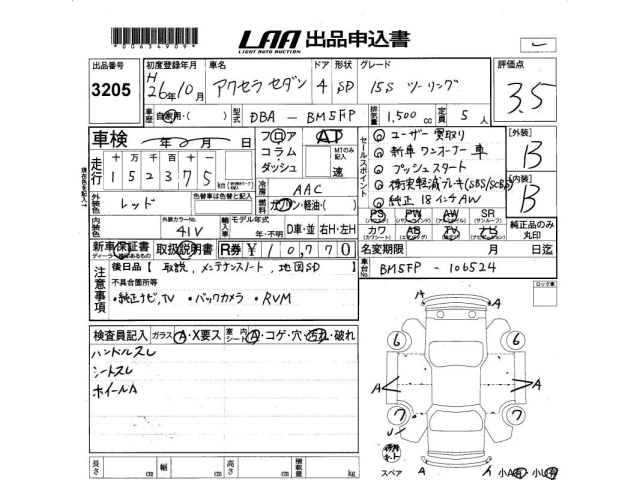 0634909
LAA 出品申込書
LIGHT AUTO AUCTION
出品番号 初度登録年月 車名 ドア 形状 グレード 評価点
3205 H26年10月 アクセラ セダン 4 SD 15S ツーリング 3.5
車歴 自家用・( ) 型式 DBA - BM5FP 排気量 1,500 cc 定員 5 人
車検 年 月 日
フロア・コラム・ダッシュ AT MTのみ記入 速
セールスポイント
ユーザー買取り
新車ワンオーナー車
プッシュスタート
衝突軽減ブレーキ(SBS/SCBS)
純正 18インチAW
[外装] B
[内装] B
走行 十 万 千 百 十 一
152375 km
冷房 AAC
燃料 ガソリン・軽油・( )
外装色 レッド 色替車は色替と記入
内装色 外装カラーNo. 41V 輸入車 モデル年式 年・不明 D車・並 右H・左H
PS PW AW SR
カワ AB TV ナビ
純正品のみ丸印
新車保証書 取扱説明書 R券 ¥10,770
名変期限 月 日迄
注意事項
後日品【 取説, メンテナンスノート, 地図SD 】
不具合箇所等
・純正ナビ,TV ・バックカメラ ・RVM
車台No. BM5FP - 106524
ロック車
検査員記入 ガラス A・X要ス 室内シート A・コゲ・穴・汚れ・破れ
ハンドルスレ
シートスレ
ホイールA
6 6
A A
7 7
A A
スペア 小A有・小U有
長さ cm 幅 cm 高さ cm 積載量 kg